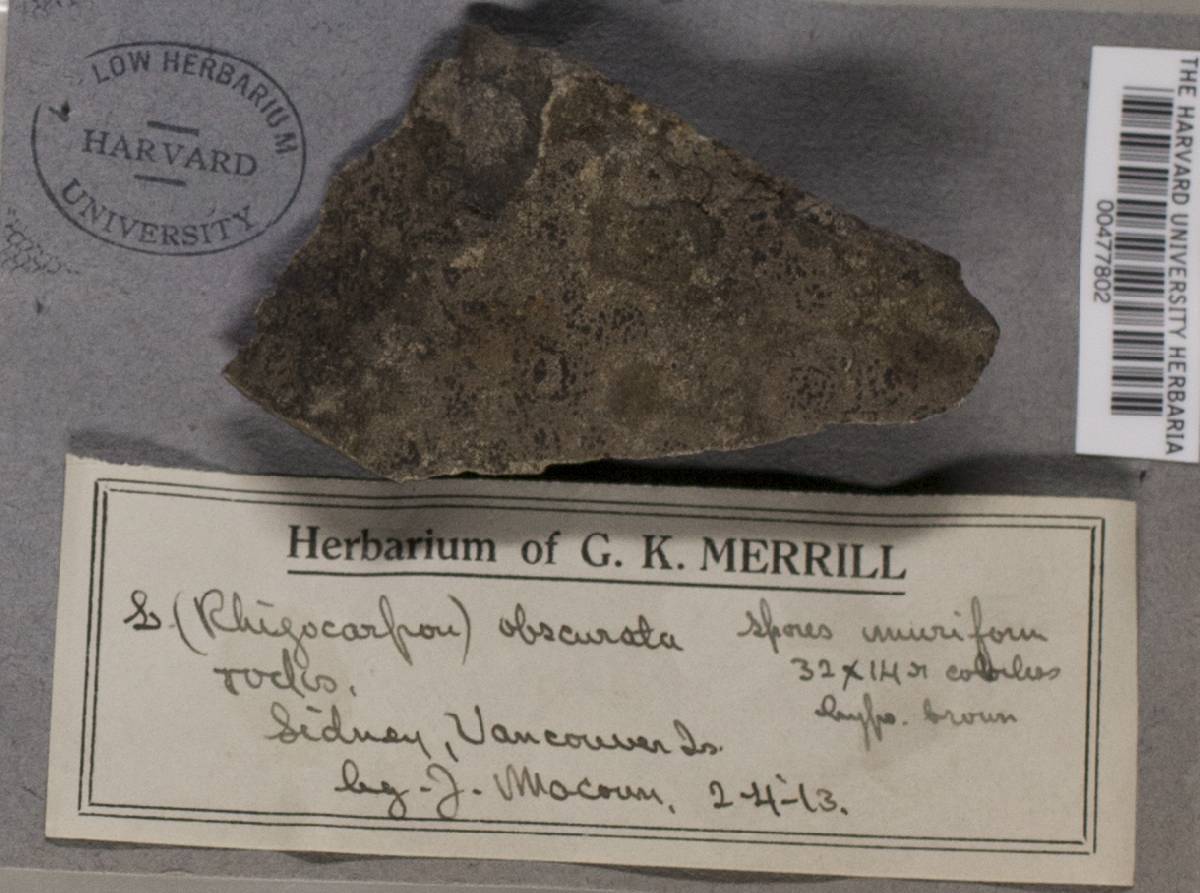 LOW HERBARIUM
HARVARD
UNIVERSITY
THE HARVARD UNIVERSITY HERBARIA
00477802
Herbarium of G. K. MERRILL
(Rhizocarpon) obscurata
rocks.
Sidney, Vancouver Is.
leg. J. Macoun, 2-4-13.
Spores muriform
32 x 14 colorless
hyp. brown